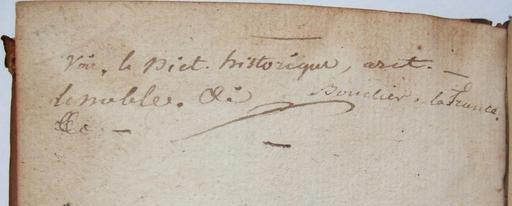 Voir, le Dict. historique, art. —
lenoble. &c Bouclier, la France.
&c. —